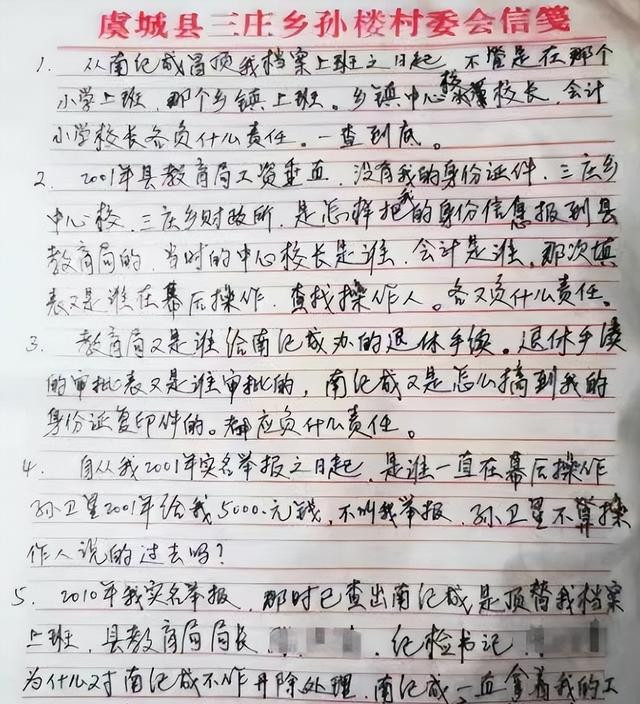 虞城县三庄乡孙楼村委会信笺
1. 从南纪成冒顶我档案上班之日起，不管是在那个
小学上班，那个乡镇上班。乡镇中心校校长，会计
小学校长各负什么责任。一查到底。
2. 2001年县教育局工资垂直，没有我的身份证件，三庄乡
中心校，三庄乡财政所，是怎样把我的身份信息报到县
教育局的，当时的中心校长是谁，会计是谁，那次填
表又是谁在幕后操作，查找操作人。各又负什么责任。
3. 教育局又是谁给南纪成办的退休手续。退休手续
的审批表又是谁审批的，南纪成又是怎么搞到我的
身份证复印件的。都应负什么责任。
4. 自从我2001年实名举报之日起，是谁一直在幕后操作
孙卫星2001年给我5000元钱，不叫我举报，孙卫星不算操
作人说的过去吗？
5. 2010年我实名举报，那时已查出南纪成是顶替我档案
上班，县教育局局长 纪检书记
为什么对南纪成不作开除处理，南纪成一直拿着我的工